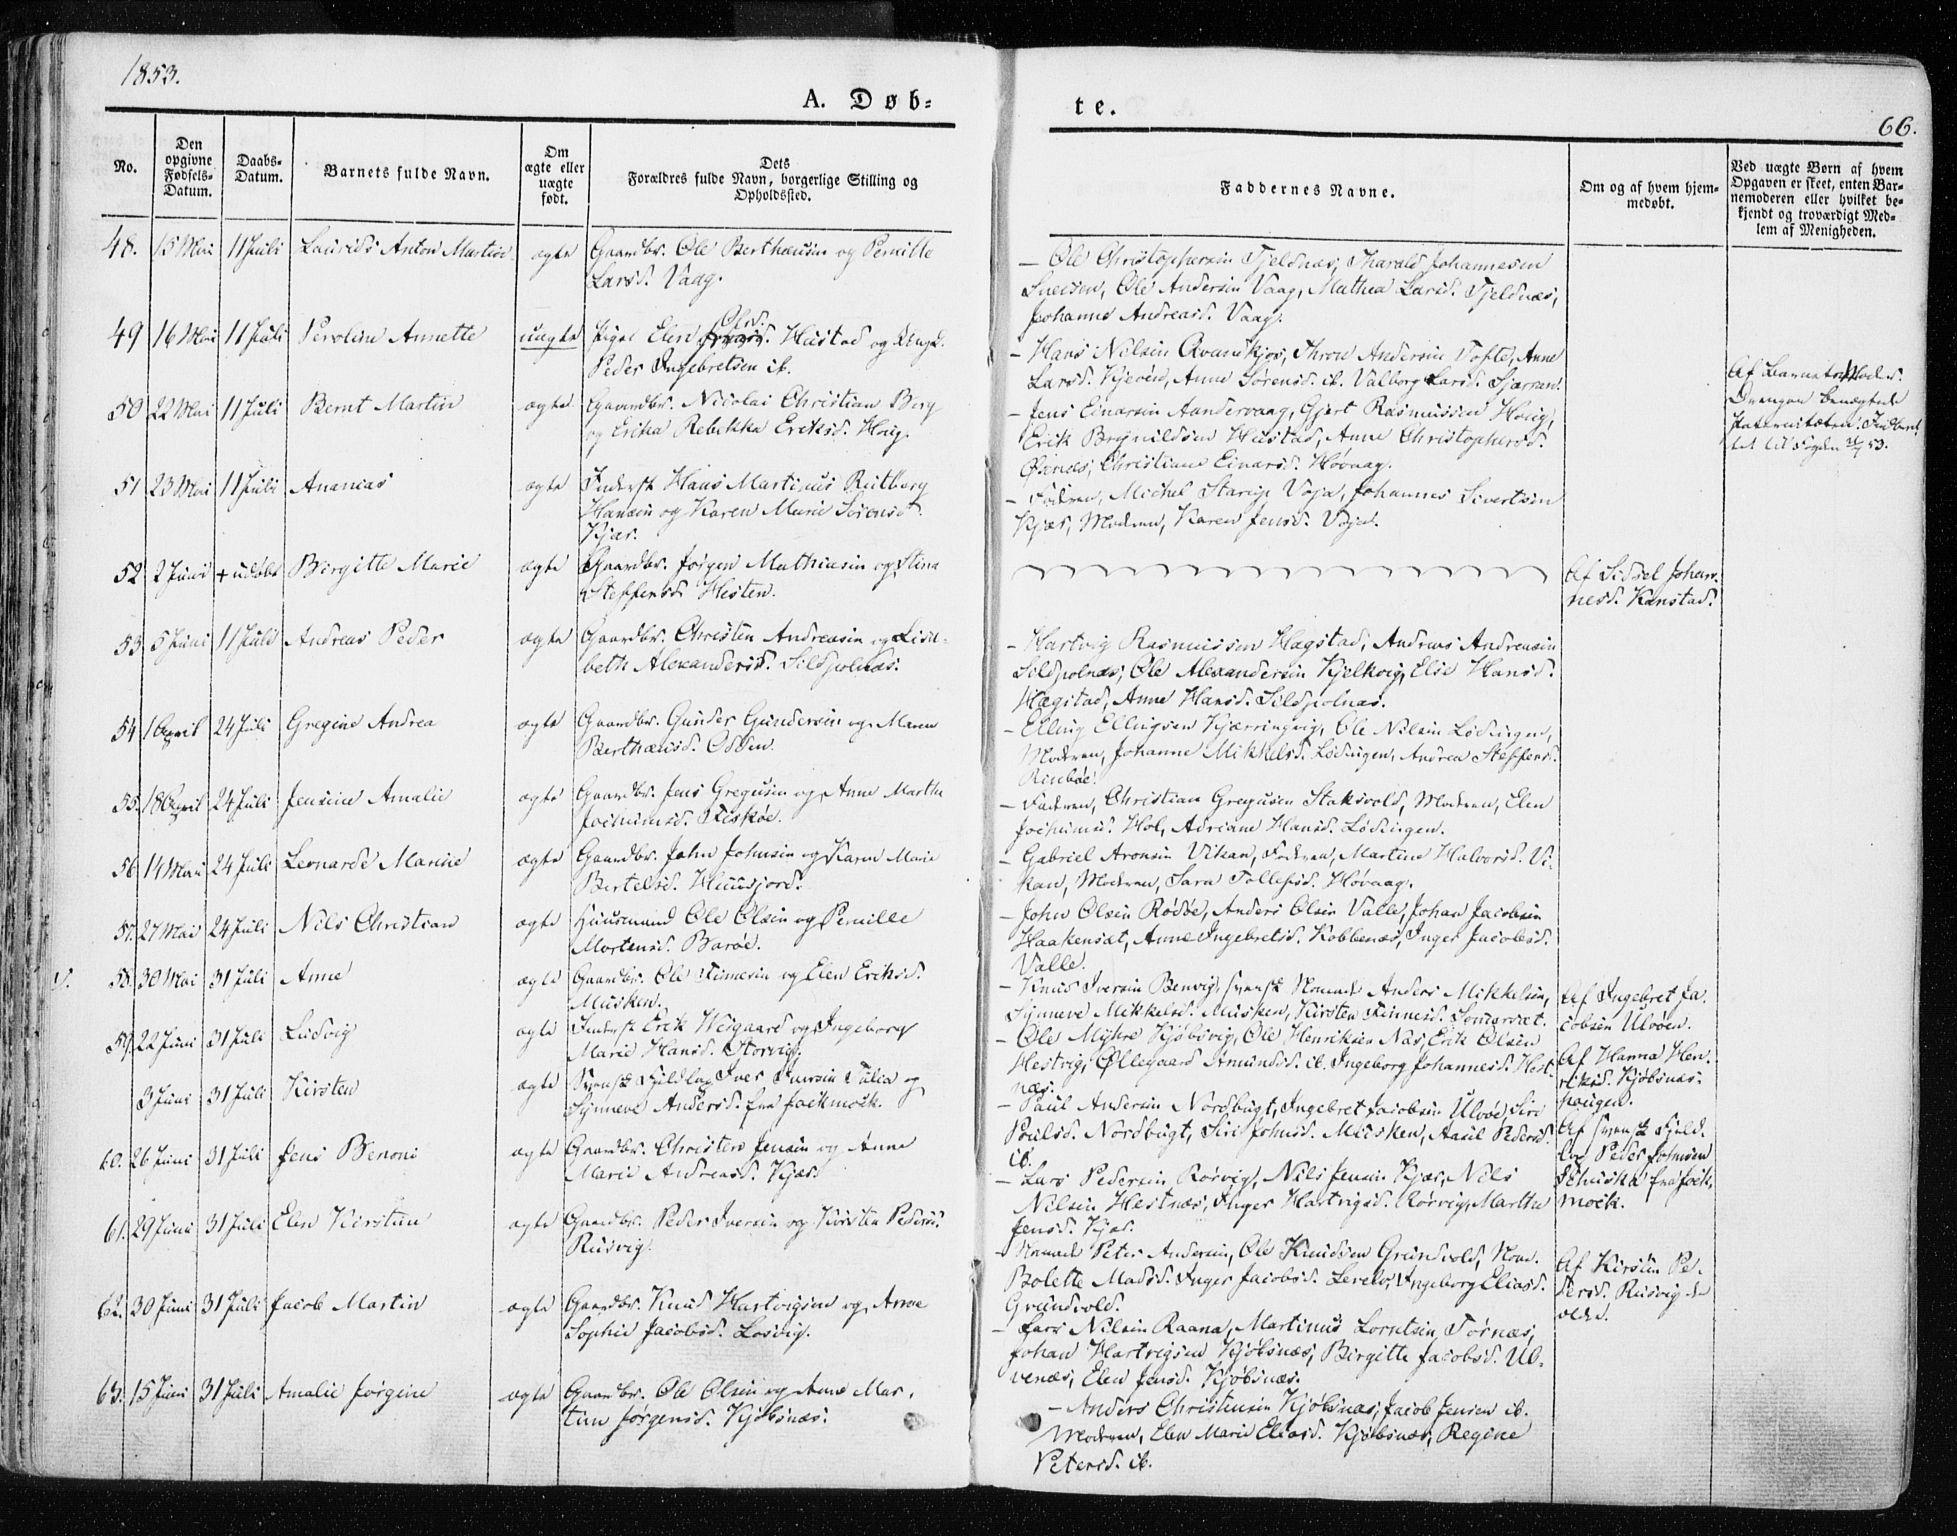 1853.
A. Døb-
te.
66.
No.
Den opgivne Fødsels-Datum.
Daabs-Datum.
Barnets fulde Navn.
Om ægte eller uægte født.
Dets Forældres fulde Navn, borgerlige Stilling og Opholdssted.
Faddernes Navne.
Om og af hvem hjem-medøbt.
Ved uægte Børn af hvem Opgaven er skeet, enten Bar-nemoderen eller hvilket be-kjendt og troværdigt Med-lem af Menigheden.
48. 15 Mai 11 Juli Laurids Anton Martin ægte Gaardbr. Ole Berthæusen og Pernille
Larsd. Vaag.
— Ole Christophersen Tjeldnæs, Tharald Johannesen
Ole Andersen Vaag, Mathea Larsd. Tjeldnæs,
Johanne Andreasd. Vaag.
49 16 Mai 11 Juli Peroline Annette uægte Pige Elen Olsd. Hustad og Ungk.
Peder Ingebretsen ib.
— Hans Nilsen Qvandkjos, Thron Andersen Tofte, Anne
Larsd. Anne Sørensd. ib. Valborg Larsd.
Af Barnets Moder.
Drengen benægtede
Paterniteten. Indberet-
tet til Fogden
50 22 Mai 11 Juli Bernt Martin ægte Gaardbr. Nicolai Christian Berg
og Erika Rebekka Eriksd. Houg.
— Jens Einarsen Aandervaag, Gjert Rasmussen Houg,
Erik Brynildsen Hustad, Anne Christophersd.
Øxnæs, Christiane Einarsd. Hovaag.
51 23 Mai 11 Juli Ananias ægte Inderst Hans Martinus Rutberg
Hansen og Karen Marie Sørensd.
Kjær.
— Faderen, Michel Voja, Johannes Sivertsen
Kjær, Moderen, Karen Jensd. Voja.
52 2 Juni + udøbt Birgitte Marie ægte Gaardbr. Jørgen Mathiasen og Stina
Steffensd. Hesten.
Af Sidsel Johan-
nesd. Kanstad.
53. 5 Juni 11 Juli Andreas Peder ægte Gaardbr. Christen Andreasen og Lisa-
beth Alexandersd. Sildpolnæs.
— Hartvig Rasmussen Hægstad, Andreas Andreasen
Sildpolnæs, Ole Alexandersen Kjelkvig, Else Hansd.
Hægstad, Anne Hansd. Sildpolnæs.
54 1 April 24 Juli Gregine Andrea ægte Gaardbr. Gunder Gundersen og Maren
Berthæusd. Odden.
— Elling Ellingsen Kjærringvig, Ole Nilsen Lødingen,
Moderen, Johanne Mikkelsd. Lødingen, Andrea Steffensd.
Rinbøe.
55. 18 April 24 Juli Jensine Amalie ægte Gaardbr. Jens Gregusen og Anne Martha
Jochumsd. Fiskøe.
— Faderen, Christian Gregusen Staksvold, Moderen, Elen
Jochumsd. Hol, Adriane Hansd. Lødingen.
56. 14 Mai 24 Juli Leonarde Marine ægte Gaardbr. John Johnsen og Karen Marie
Bertelsd. Huusjord.
— Gabriel Aronsen Vikan, Faderen, Martine Halvorsd. Vi-
kan, Moderen, Sara Tollefsd. Hovaag.
57. 27 Mai 24 Juli Nils Christian ægte Huusmand Ole Olsen og Pernille
Mortensd. Barøe.
— John Olsen Rødøe, Anders Olsen Valle, Johan Jacobsen
Haakensæt, Anne Ingebretsd. Kobbenæs, Inger Jacobsd.
Valle.
58. 30 Mai 31 Juli Anne ægte Gaardbr. Ole Finnesen og Elen Eriksd.
Musken.
— Knud Iversen Benvig, svensk Nomade Anders Mikkelsen,
Synneve Mikkelsd. Musken, Kirsten Finnesd. Sommersæt.
Af Ingebret Ja-
cobsen Uløen.
59. 22 Juni 31 Juli Ludvig ægte Inderst Erik Wesgaard og Ingeborg
Marie Hansd. Storvig.
— Ole Myhre Kjøbsvig, Ole Henriksen Næs, Erik Olsen
Hestvig, Øllegaard Amundsd. ib. Ingeborg Johannesd. Hest-
næs.
Af Hanna Hen-
riksd. Kjøbsnæs-
haugen.
3 Juni 31 Juli Kirsten ægte Svensk Fjeldlap Iver Iversen Tulea og
Synneve Andersd. fra Jockmock.
— Paul Andersen Nordbugt, Ingebret Jacobsen Uløe, Siri
Poulsd. Nordbugt, Siri Johnsd. Musken, Aasil Pedersd.
ib.
Af svensk Fjeld-
lap Peder Johnsen
fra Jock-
mock.
60. 26 Juni 31 Juli Jens Benoni ægte Gaardbr. Christen Jensen og Anne
Marie Andreasd. Kjær.
— Lars Pedersen Rørvig, Nils Jensen Kjær, Nils
Nilsen Hestnæs, Inger Hartvigsd. Rørvig, Martha
Jensd. Kjær.
61. 29 Juni 31 Juli Elen Kirstine ægte Gaardbr. Peder Iversen og Kirsten Pedersd.
Rusvig.
— Nomade Peter Andersen, Ole Knudsen Grundvold, Nom.
Bolette Madsd. Inger Jacobsd. Ingeborg Eliasd.
Grundvold.
Af Kirstin Pe-
dersd. Rusvig de
62. 30 Juni 31 Juli Jacob Martin ægte Gaardbr. Knud Hartvigsen og Anne
Sophie Jacobsd. Losvig.
— Lars Nilsen Raana, Martinus Lorntsen Tørnæs,
Johan Hartvigsen Kjøbsnæs, Birgitte Jacobsd. Ul-
venæs, Elen Jensd. Kjøbsnæs.
63. 15 Juni 31 Juli Amalie Jørgine ægte Gaardbr. Ole Olsen og Anne Mar-
tine Jørgensd. Kjøbsnæs.
— Anders Christensen Kjøbsnæs, Jacob Jensen ib.
Moderen, Elen Marie Eliasd. Kjøbsnæs, Regine
Petersd. ib.